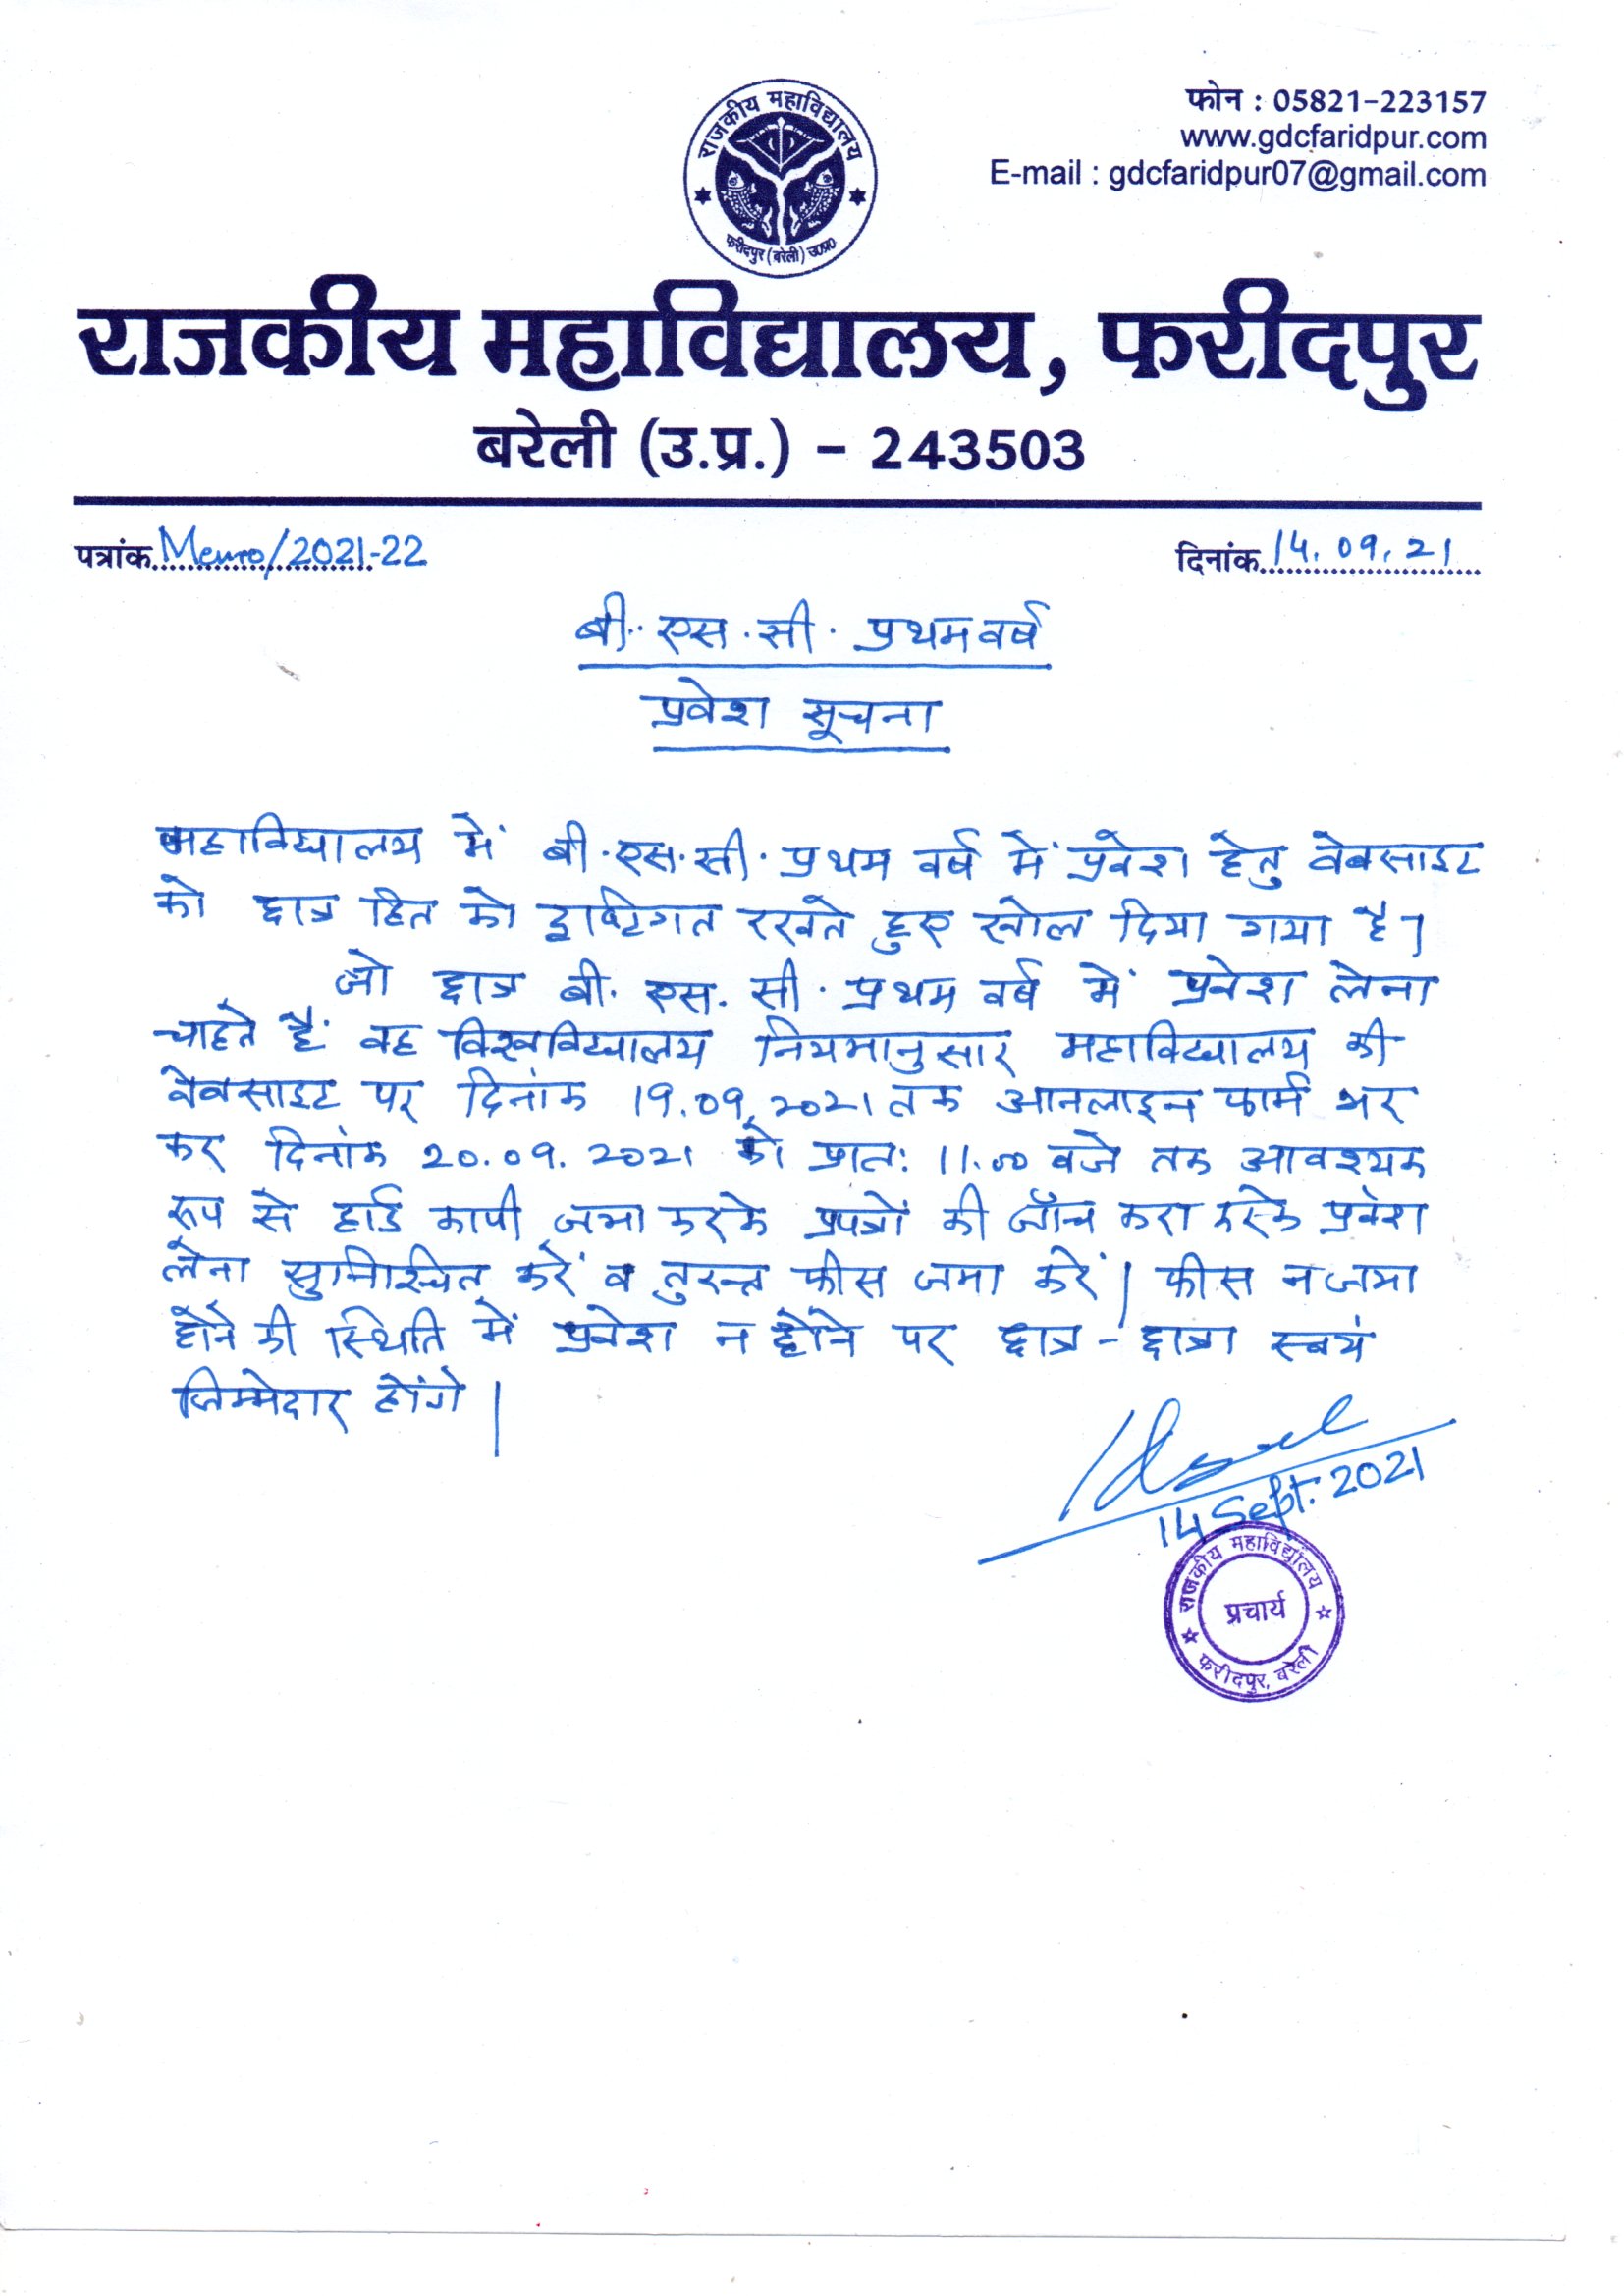 राजकीय महाविद्यालय
फरीदपुर (बरेली) उ0प्र0
फोन : 05821-223157
www.gdcfaridpur.com
E-mail : gdcfaridpur07@gmail.com
राजकीय महाविद्यालय, फरीदपुर
बरेली (उ.प्र.) - 243503
पत्रांक Memo/2021-22 दिनांक 14.09.21
बी. एस. सी. प्रथम वर्ष
प्रवेश सूचना
महाविद्यालय में बी. एस. सी. प्रथम वर्ष में प्रवेश हेतु वेबसाइट
को छात्र हित को दृष्टिगत रखते हुए खोल दिया गया है।
जो छात्र बी. एस. सी. प्रथम वर्ष में प्रवेश लेना
चाहते हैं वह विश्वविद्यालय नियमानुसार महाविद्यालय की
वेबसाइट पर दिनांक 19.09.2021 तक आनलाइन फार्म भर
कर दिनांक 20.09.2021 को प्रातः 11.00 बजे तक आवश्यक
रूप से हार्ड कापी जमा करके प्रपत्रों की जाँच करा करके प्रवेश
लेना सुनिश्चित करें व तुरन्त फीस जमा करें। फीस न जमा
होने की स्थिति में प्रवेश न होने पर छात्र - छात्रा स्वयं
जिम्मेदार होंगे।
14 Sept. 2021
राजकीय महाविद्यालय
प्रचार्य
फरीदपुर, बरेली